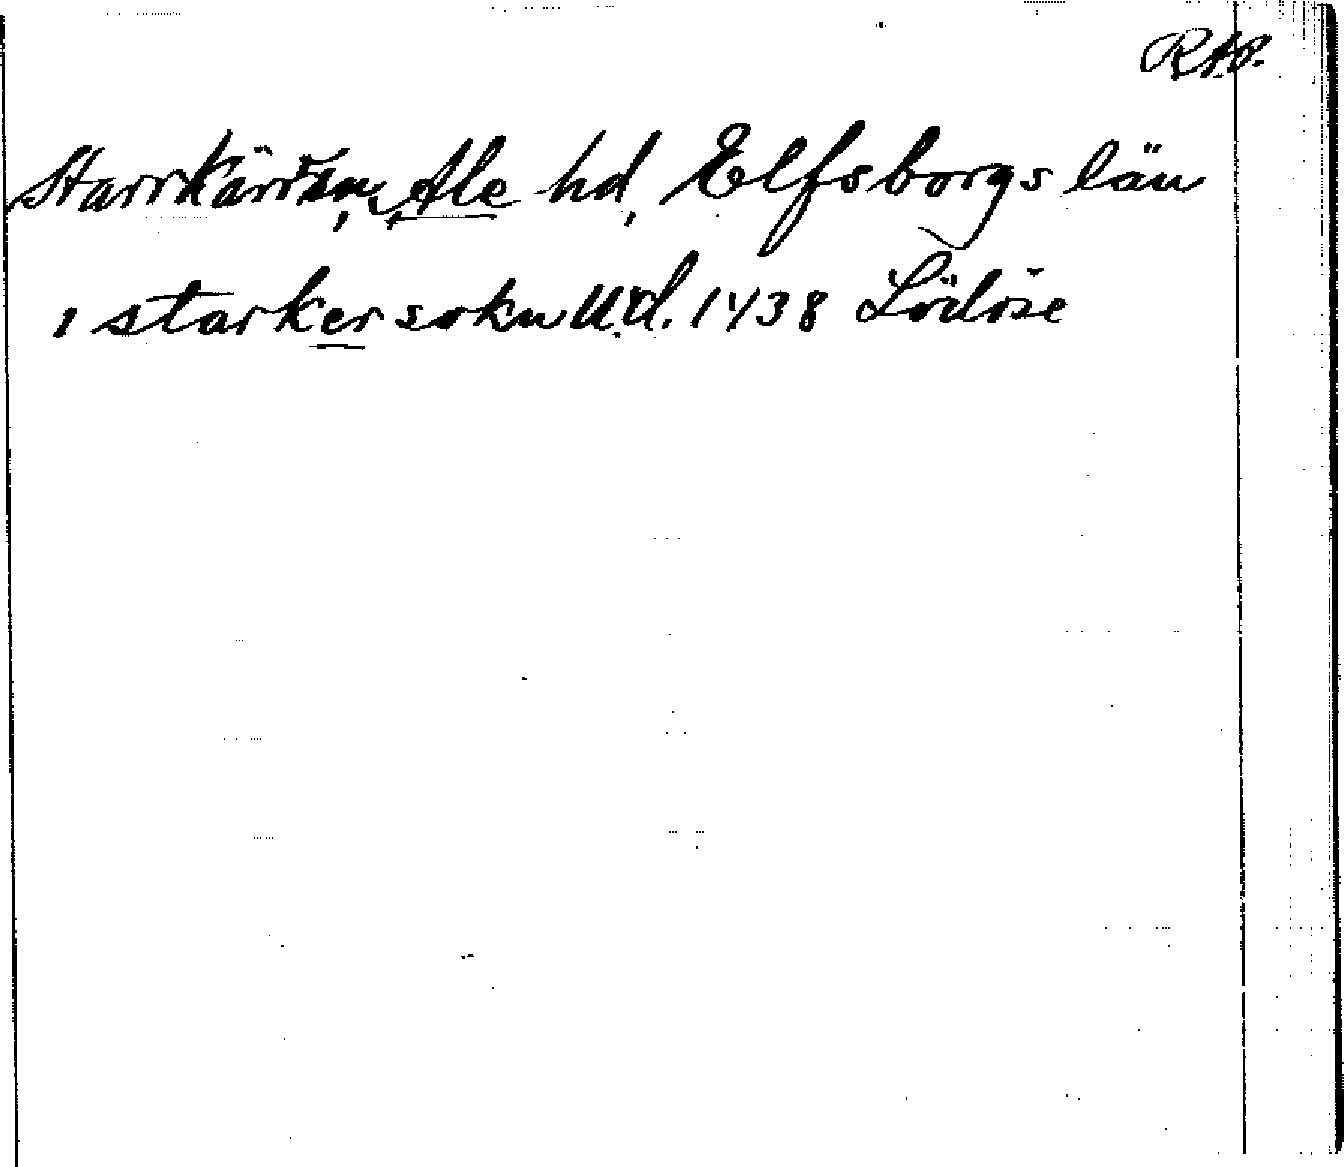 RAP.
Starrkärrsn, Ale hd, Elfsborgs län
i starker sokn U.d. 1438 Lödöse